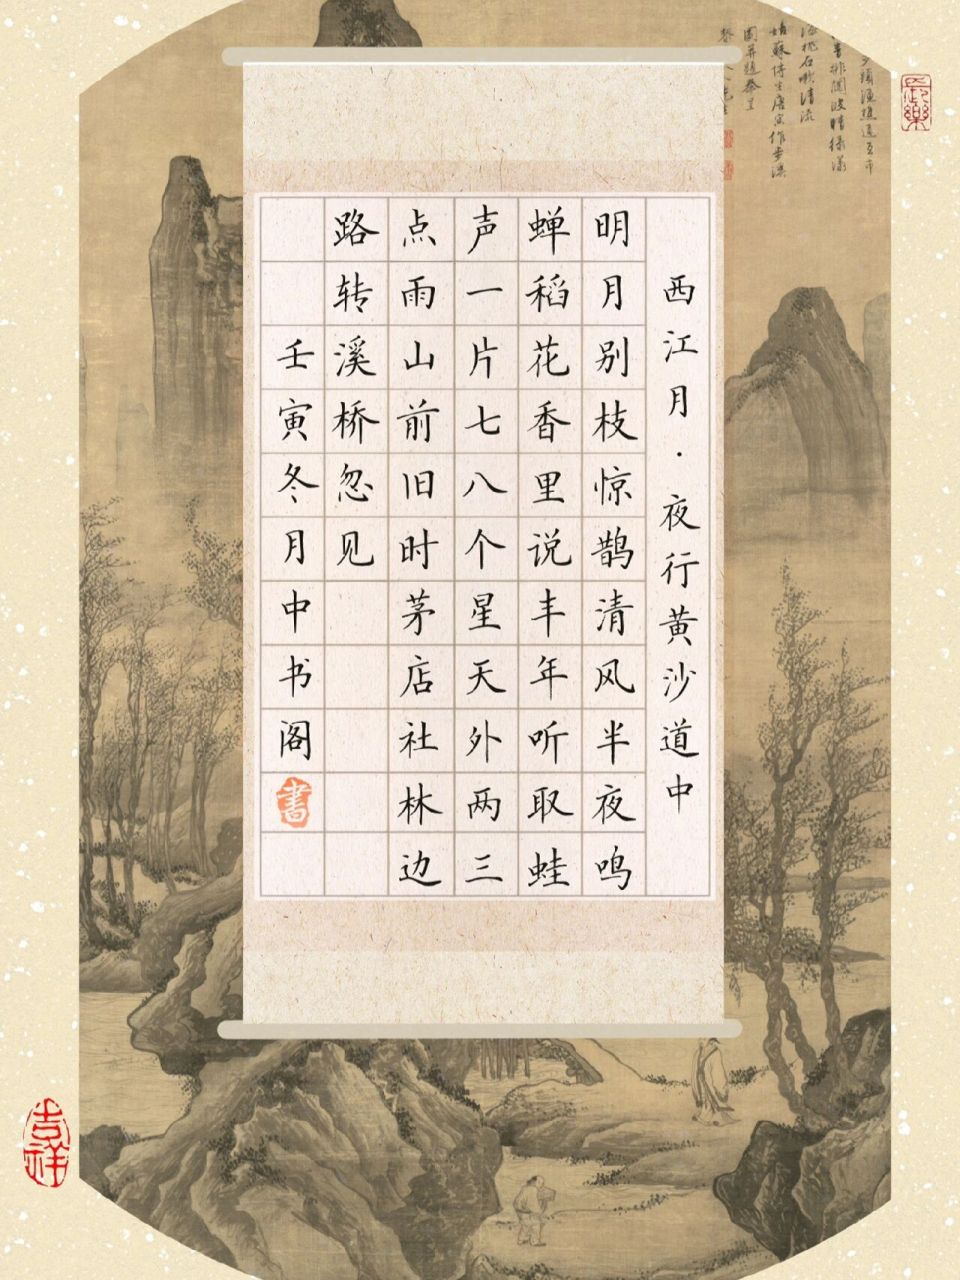 西江月·夜行黄沙道中
明月别枝惊鹊清风半夜鸣
蝉稻花香里说丰年听取蛙
声一片七八个星天外两三
点雨山前旧时茅店社林边
路转溪桥忽见
壬寅冬月中书阁
書
吉祥